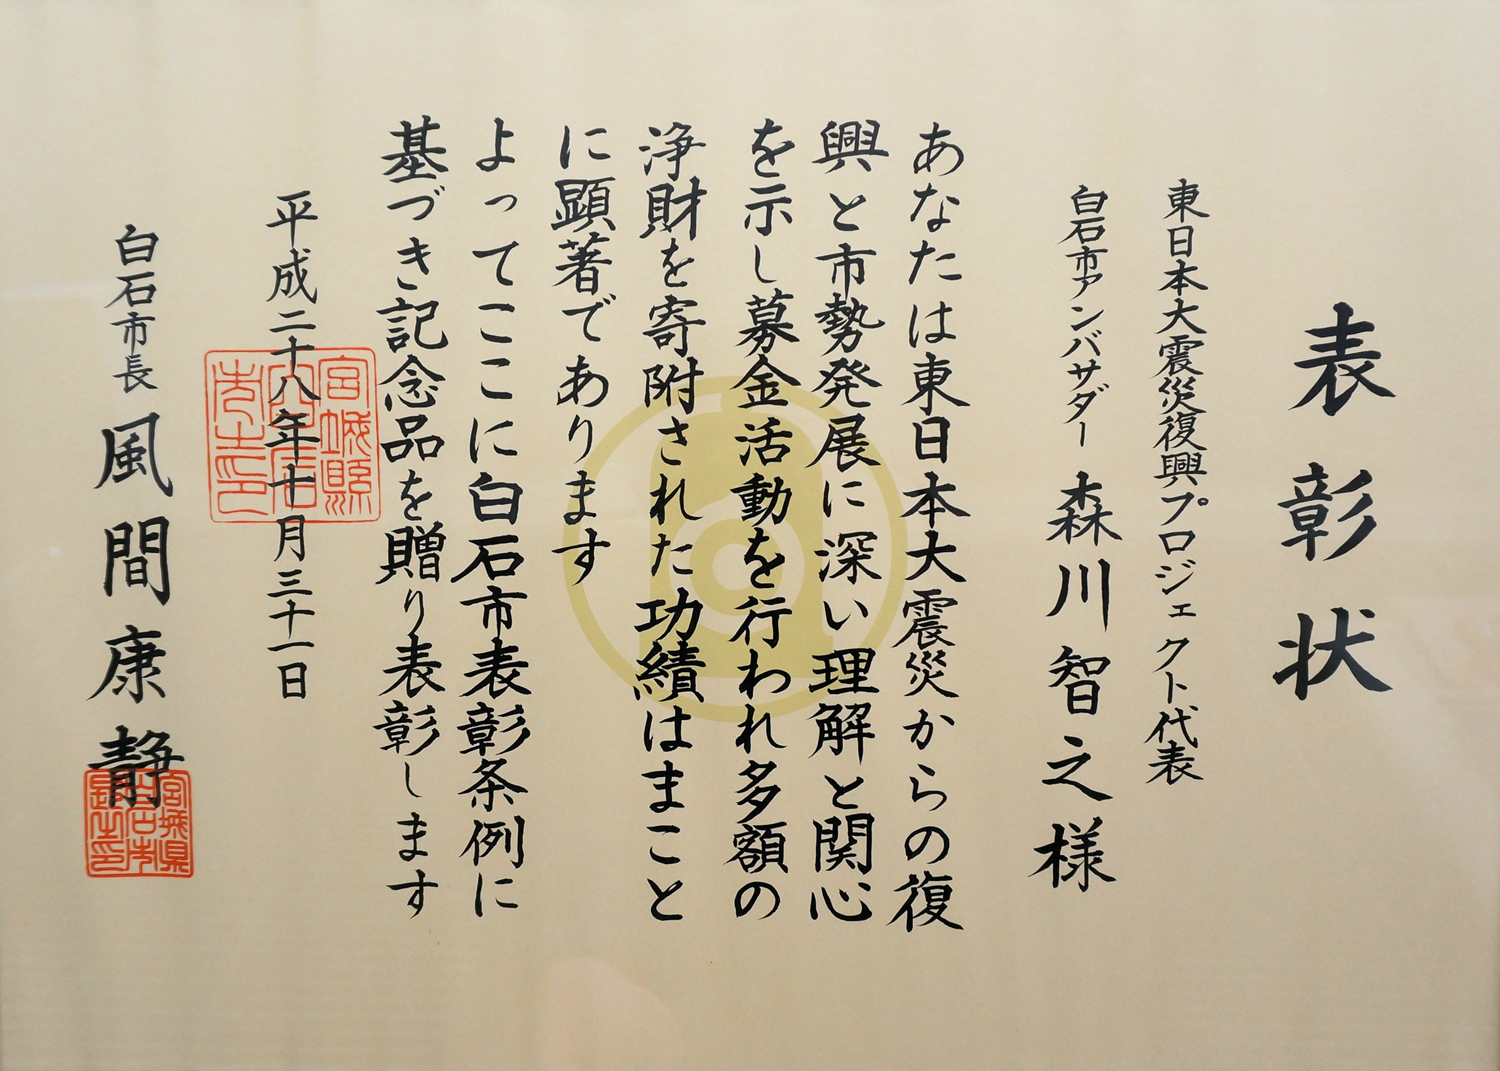 表彰状
東日本大震災復興プロジェクト代表
白石市アンバサダー 森川智之様
あなたは東日本大震災からの復
興と市勢発展に深い理解と関心
を示し募金活動を行われ多額の
浄財を寄附された功績はまこと
に顕著であります
よってここに白石市表彰条例に
基づき記念品を贈り表彰します
平成二十八年十月三十一日
宮城縣
白石
市之印
白石市長 風間康静
宮城県
白石市
長之印